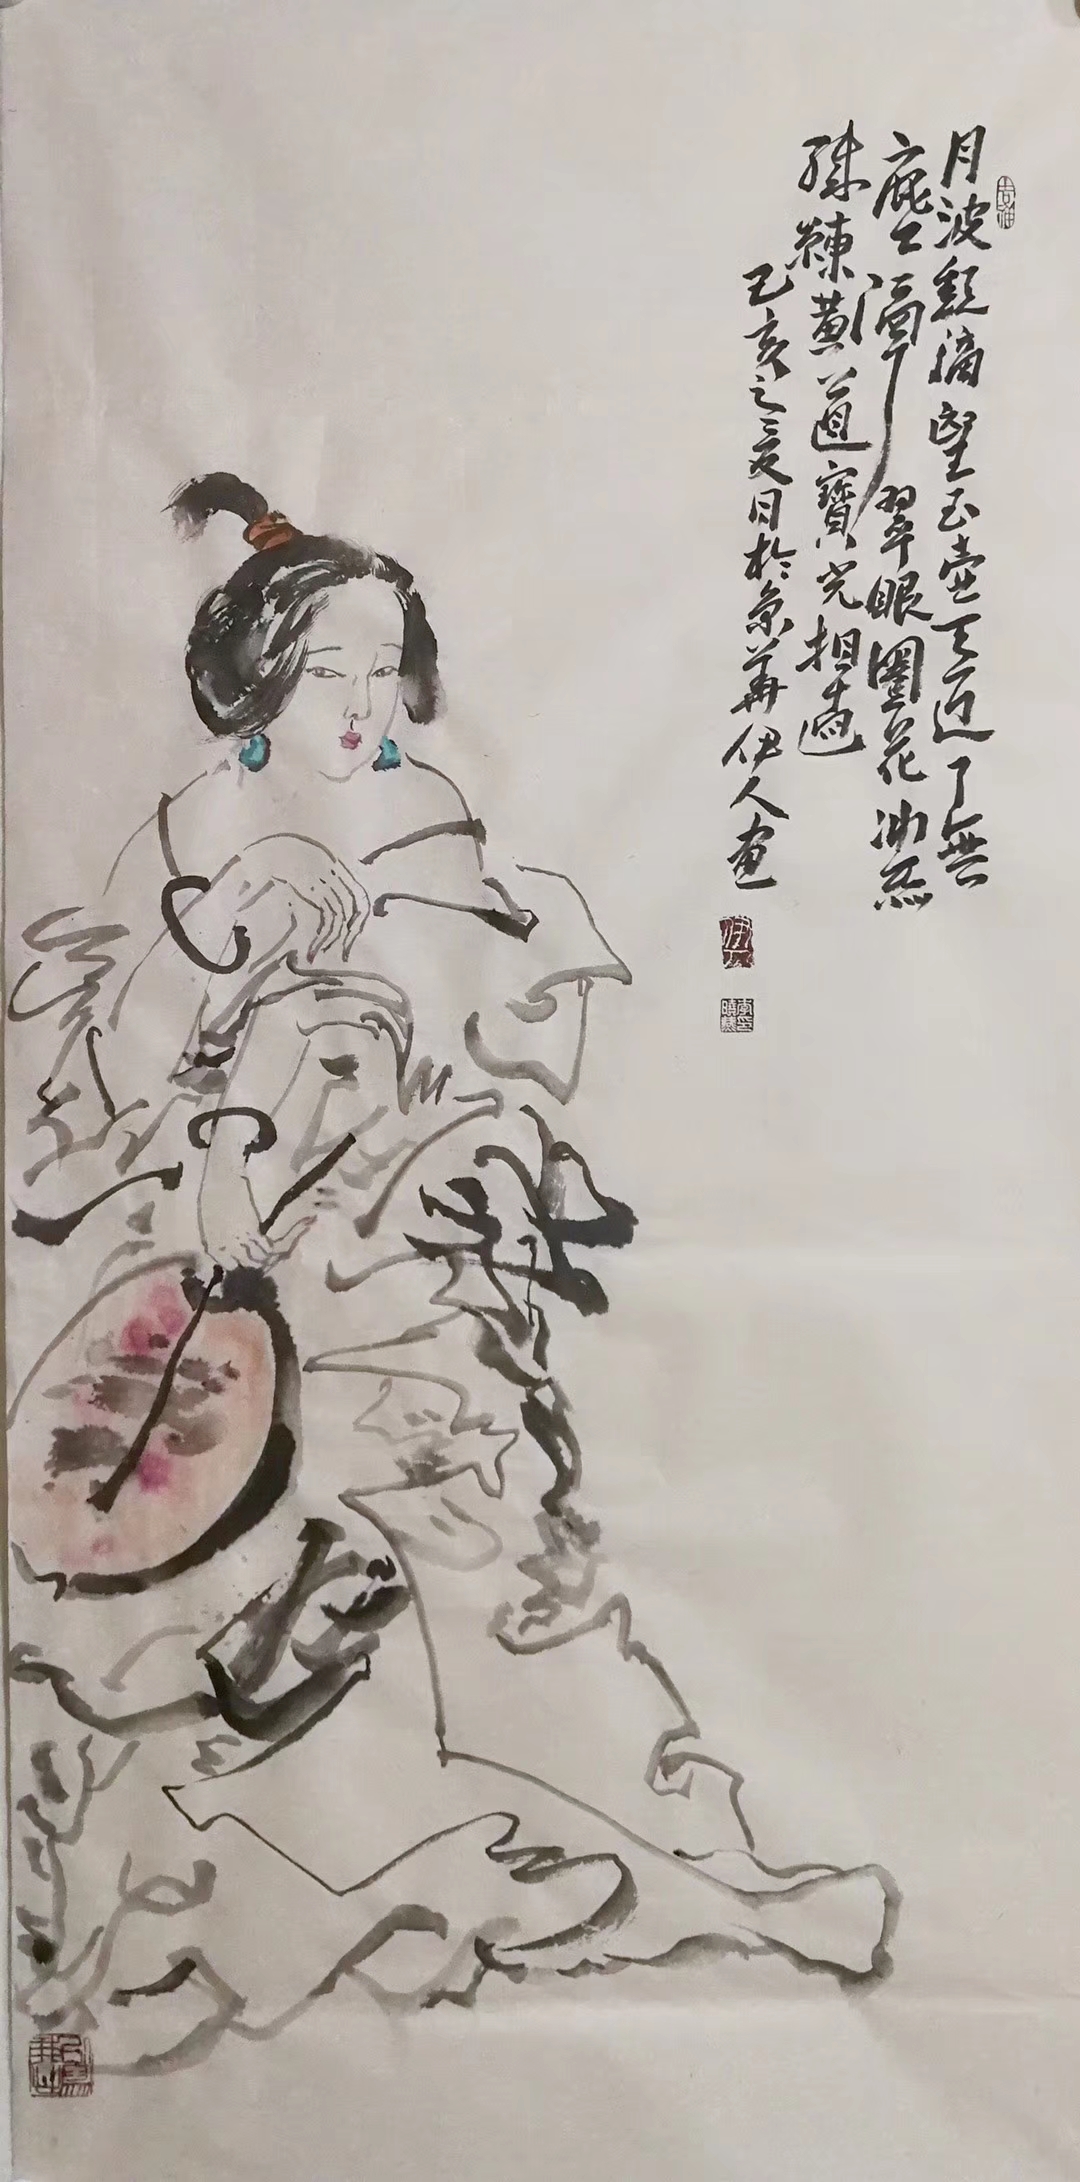 月波疑滴望玉壺天近了無
塵隔翠眼圈花冰絲
織練黄道寶光相
己亥之夏日於京華伊人畫
伊人